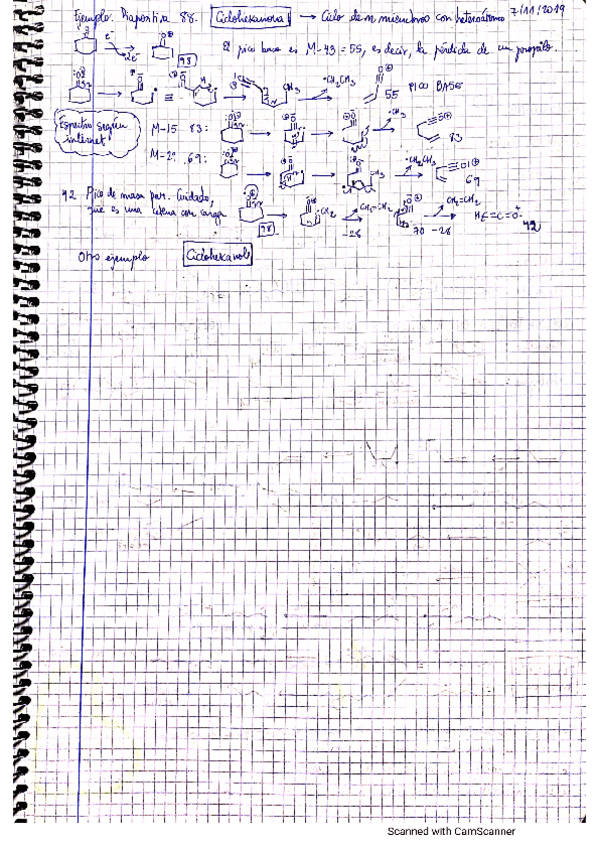 Ejemplo. Diapositiva 88. Ciclohexanona → Ciclo de n miembros con heteroátomo 7/11/2019
El pico base es M-43 = 55, es decir, la pérdida de un propilo.
98
CH₃ •CH₂CH₃ 55 PICO BASE
Espectro según internet
M-15. 83: •CH₃ 83
69: •CH₂CH₃ 69
42 Pico de masa par. Cuidado, que es una
98 CH₂ -28 CH₂=CH₂ 70 -28 CH₂=CH₂ 42
Otro ejemplo Ciclohexanol
Scanned with CamScanner